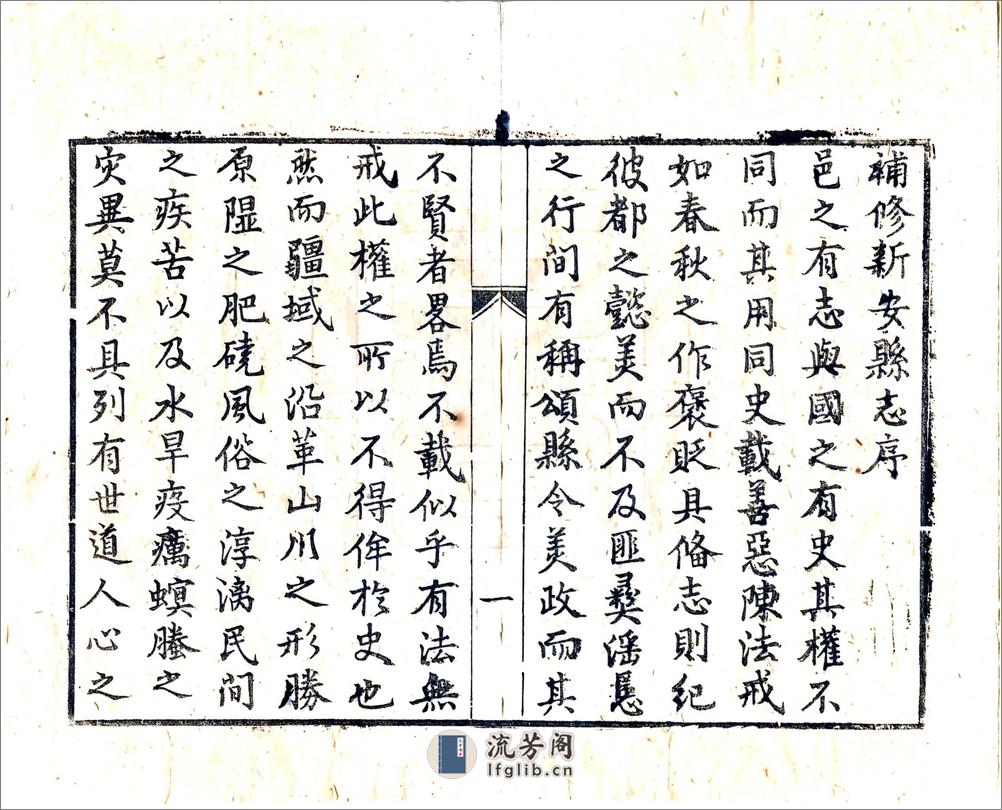 補修新安縣志序
邑之有志與國之有史其權不
同而其用同史載善惡陳法戒
如春秋之作褒貶具備志則紀
彼都之懿美而不及匪彛滛慝
之行間有稱頌縣令美政而其
一
不賢者畧焉不載似乎有法無
戒此權之所以不得侔於史也
然而疆域之沿革山川之形勝
原隰之肥磽風俗之淳漓民間
之疾苦以及水旱疫癘螟螣之
灾異莫不具列有世道人心之
流芳阁
lfglib.cn